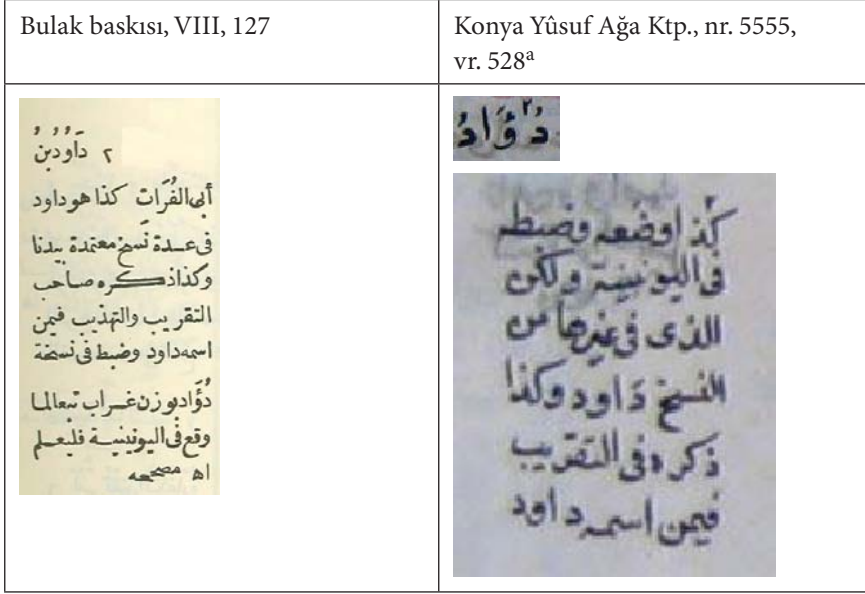 Bulak baskısı, VIII, 127
Konya Yûsuf Ağa Ktp., nr. 5555,
vr. 528ᵃ
٢ دَاوُدُبْنُ
أبي الفُرَاتِ كذا هو داود
فى عدة نسخ معتمدة بيدنا
وكذا ذكره صاحب
التقريب والتهذيب فيمن
اسمه داود وضبط فى نسخة
دُؤَاد بوزن غراب تبعا لما
وقع فى اليونينية فليعلم
اه مصححه
دُؤَادُ ٢
كذا وضعه وضبطه
فى اليونينية ولكن
الذى فى غيرها من
النسخ دَاود وكذا
ذكره فى التقريب
فيمن اسمه داود